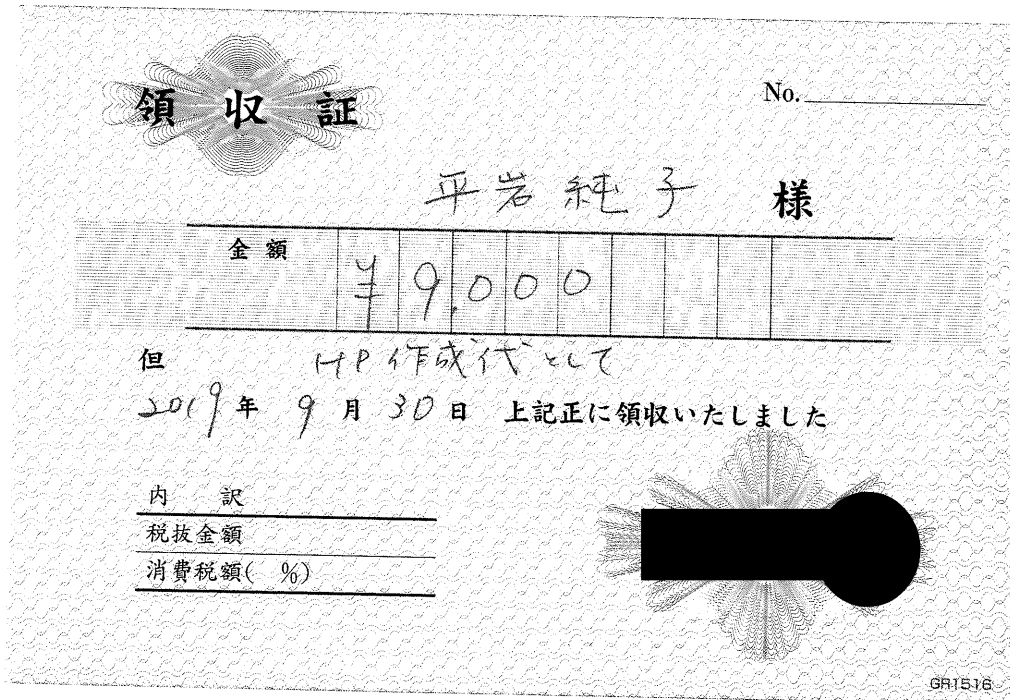 領収証
No.
平岩純子 様
金額 ¥9,000
但 HP作成代として
2019年 9月 30日 上記正に領収いたしました
内 訳
税抜金額
消費税額( %)
GR1516